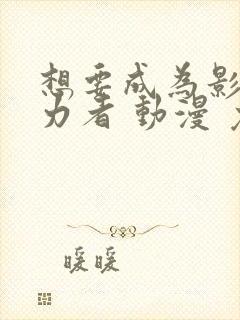 想要成為影
力者 動漫
暖暖